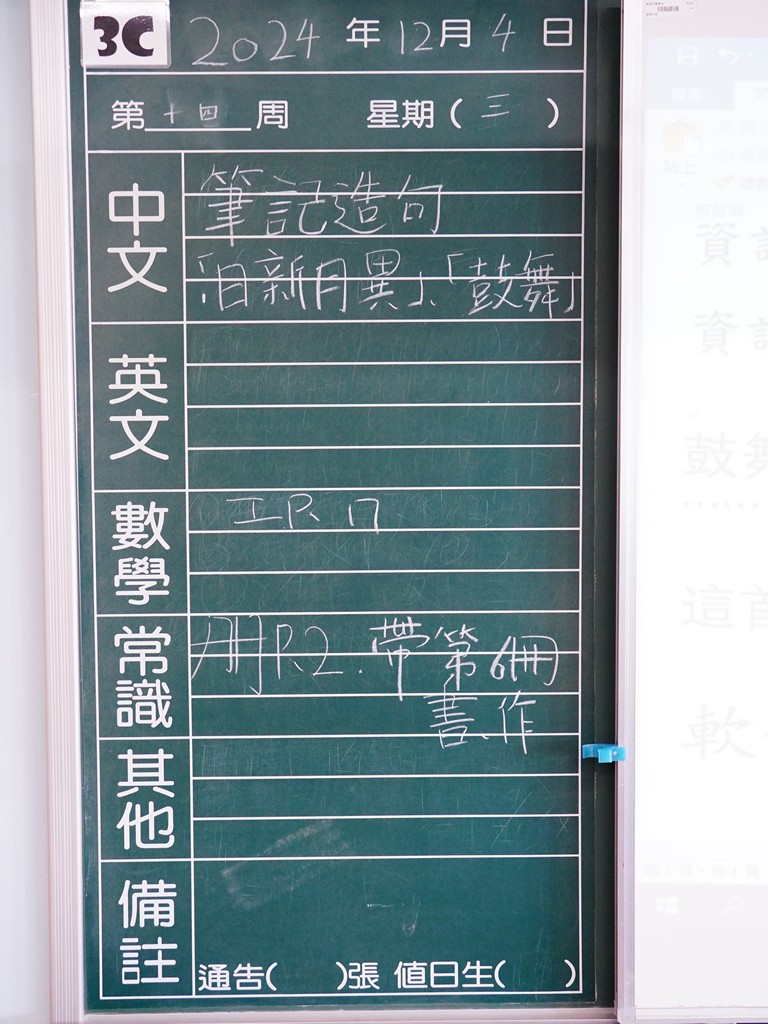 3C 2024年12月4日
第十四周 星期(三)
中文
筆記造句
「日新月異」、「鼓舞」
英文
數學
工P.17
常識
冊P.2.帶第6冊
書、作
其他
備註
通告( )張 值日生( )
資訊
資訊
鼓舞
這首
軟